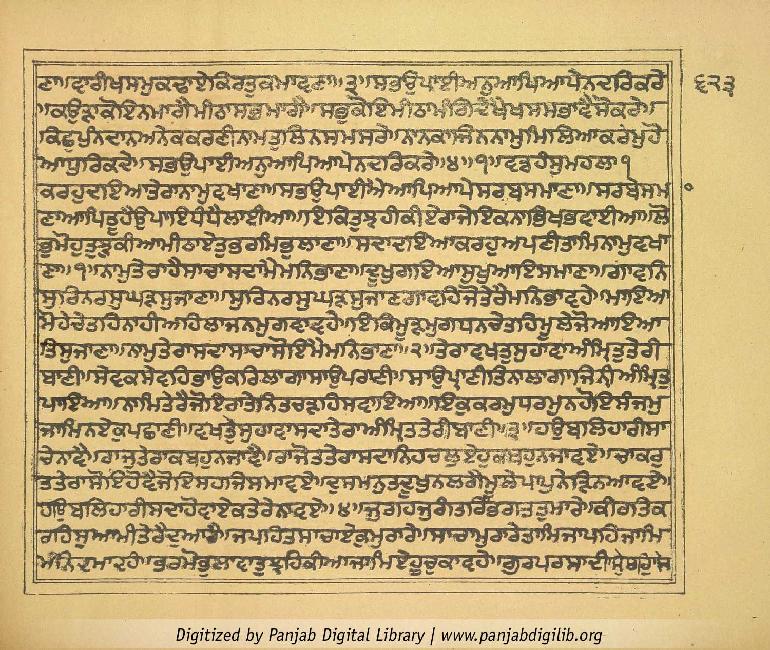 ਣਾ॥ਵਾਰੀਖਸਮੁਕਢਾਏਕਿਰਤੁਕਮਾਵਣਾ॥੩॥ਸਭਉਪਾਈਅਨੁਆਪਿਆਪੇਨਦਰਿਕਰੇ
੬੨੩
॥ਕਉੜਾਕੋਇਨਮਾਗੈਮੀਠਾਸਭਮਾਗੈ॥ਸਭੁਕੋਇਮੀਠਾਮੰਗਿਦੇਖੈਖਸਮਭਾਵੈਸੋਕਰੇ॥
ਕਿਛੁਪੁੰਨਦਾਨਅਨੇਕਕਰਣੀਨਾਮਤੁਲਿਨਸਮਸਰੇ॥ਨਾਨਕਾਜਿਨਨਾਮੁਮਿਲਿਆਕਰਮੁਹੋ
ਆਧੁਰਿਕਦੇ॥ਸਭਉਪਾਈਅਨੁਆਪਿਆਪੇਨਦਰਿਕਰੇ॥੪॥੧॥ਵਡਹੰਸੁਮਹਲਾ੧
ਕਰਹੁਦਇਆਤੇਰਾਨਾਮੁਵਖਾਣਾ॥ਸਭਉਪਾਈਐਆਪਿਆਪੇਸਰਬਸਮਾਣਾ॥ਸਰਬੇਸਮ
ਣਾਆਪਿਤੂਹੈਉਪਾਇਧੰਧੈਲਾਈਆ॥ਇਕਿਤੁਝਹੀਕੀਏਰਾਜੇਇਕਨਾਭਿਖਭਵਾਈਆ॥ਲੋ
ਭੁਮੋਹੁਤੁਝੁਕੀਆਮੀਠਾਏਤੁਭਰਮਿਭੁਲਾਣਾ॥ਸਦਾਦਇਆਕਰਹੁਅਪਣੀਤਾਮਿਨਾਮੁਵਖਾ
ਣਾ॥੧॥ਨਾਮੁਤੇਰਾਹੈਸਾਚਾਸਦਾਮੈਮਨਿਭਾਣਾ॥ਦੂਖੁਗਇਆਸੁਖੁਆਇਸਮਾਣਾ॥ਗਾਵਨਿ
ਸੁਰਿਨਰਸੁਘੜਸੁਜਾਣਾ॥ਸੁਰਿਨਰਸੁਘੜਸੁਜਾਣਗਾਵਹਿਜੋਤੇਰੈਮਨਿਭਾਵਹੇ॥ਮਾਇਆ
ਮੋਹੇਚੇਤਹਿਨਾਹੀਅਹਿਲਾਜਨਮੁਗਵਾਵਹੇ॥ਇਕਿਮੂੜਮੁਗਧਨਚੇਤਹਿਮੂਲੇਜੋਆਇਆ
ਤਿਸੁਜਾਣਾ॥ਨਾਮੁਤੇਰਾਸਦਾਸਾਚਾਸੋਇਮੈਮਨਿਭਾਣਾ॥੨॥ਤੇਰਾਵਖਤੁਸੁਹਾਵਾਅੰਮ੍ਰਿਤੁਤੇਰੀ
ਬਾਣੀ॥ਸੇਵਕਸੇਵਹਿਭਾਉਕਰਿਲਾਗਾਸਾਉਪਰਾਣੀ॥ਸਾਉਪ੍ਰਾਣੀਤਿਨਾਲਾਗਾ॥ਜਿਨੀਅੰਮ੍ਰਿਤੁ
ਪਾਇਆ॥ਨਾਮਿਤੇਰੈਜੋਇਰਾਤੇਨਿਤਚੜਹਿਸਵਾਇਆ॥ਇਕੁਕਰਮੁਧਰਮੁਨਹੋਇਸੰਜਮੁ
ਜਾਮਿਨਏਕੁਪਛਾਣੀ॥ਵਖਤੁਸੁਹਾਵਾਸਦਾਤੇਰਾਅੰਮ੍ਰਿਤਤੇਰੀਬਾਣੀ॥੩॥ਹਉਬਲਿਹਾਰੀਸਾ
ਚੇਨਾਵੈ॥ਰਾਜੁਤੇਰਾਕਬਹੁਨਜਾਵੈ॥ਰਾਜੋਤਤੇਰਾਸਦਾਨਿਹਚਲੁਏਹੁਕਬਹੁਨਜਾਵਏ॥ਚਾਕਰੁ
ਤਤੇਰਾਸੋਇਹੋਵੈਜੋਇਸਹਾਜਿਸਮਾਵਏ॥ਦੁਸਮਨੁਤਦੂਖੁਨਲਗੈਮੂਲੇਪਾਪੁਨੇੜਿਨਆਵਏ॥
ਹਉਬਲਿਹਾਰੀਸਦਾਹੋਵਾਏਕਤੇਰੇਨਾਵਏ॥੪॥ਜੁਗਹਜੁਗੰਤਰਿਭਗਤਤੁਮਾਰੇ॥ਕੀਰਤਿਕ
ਰਹਿਸੁਆਮੀਤੇਰੈਦੁਆਰੈ॥ਜਪਹਿਤਸਾਚਾਏਕੁਮੁਰਾਰੇ॥ਸਾਚਾਮੁਰਾਰੇਤਾਮਿਜਾਪਹਿਜਾਮਿ
ਮੰਨਿਵਸਾਵਹੇ॥ਭਰਮੋਭੁਲਾਵਾਤੁਝਹਿਕੀਆਜਾਮਿਏਹੁਚੁਕਾਵਹੇ॥ਗੁਰਪਰਸਾਦੀ
Digitized by Panjab Digital Library | www.panjabdigilib.org